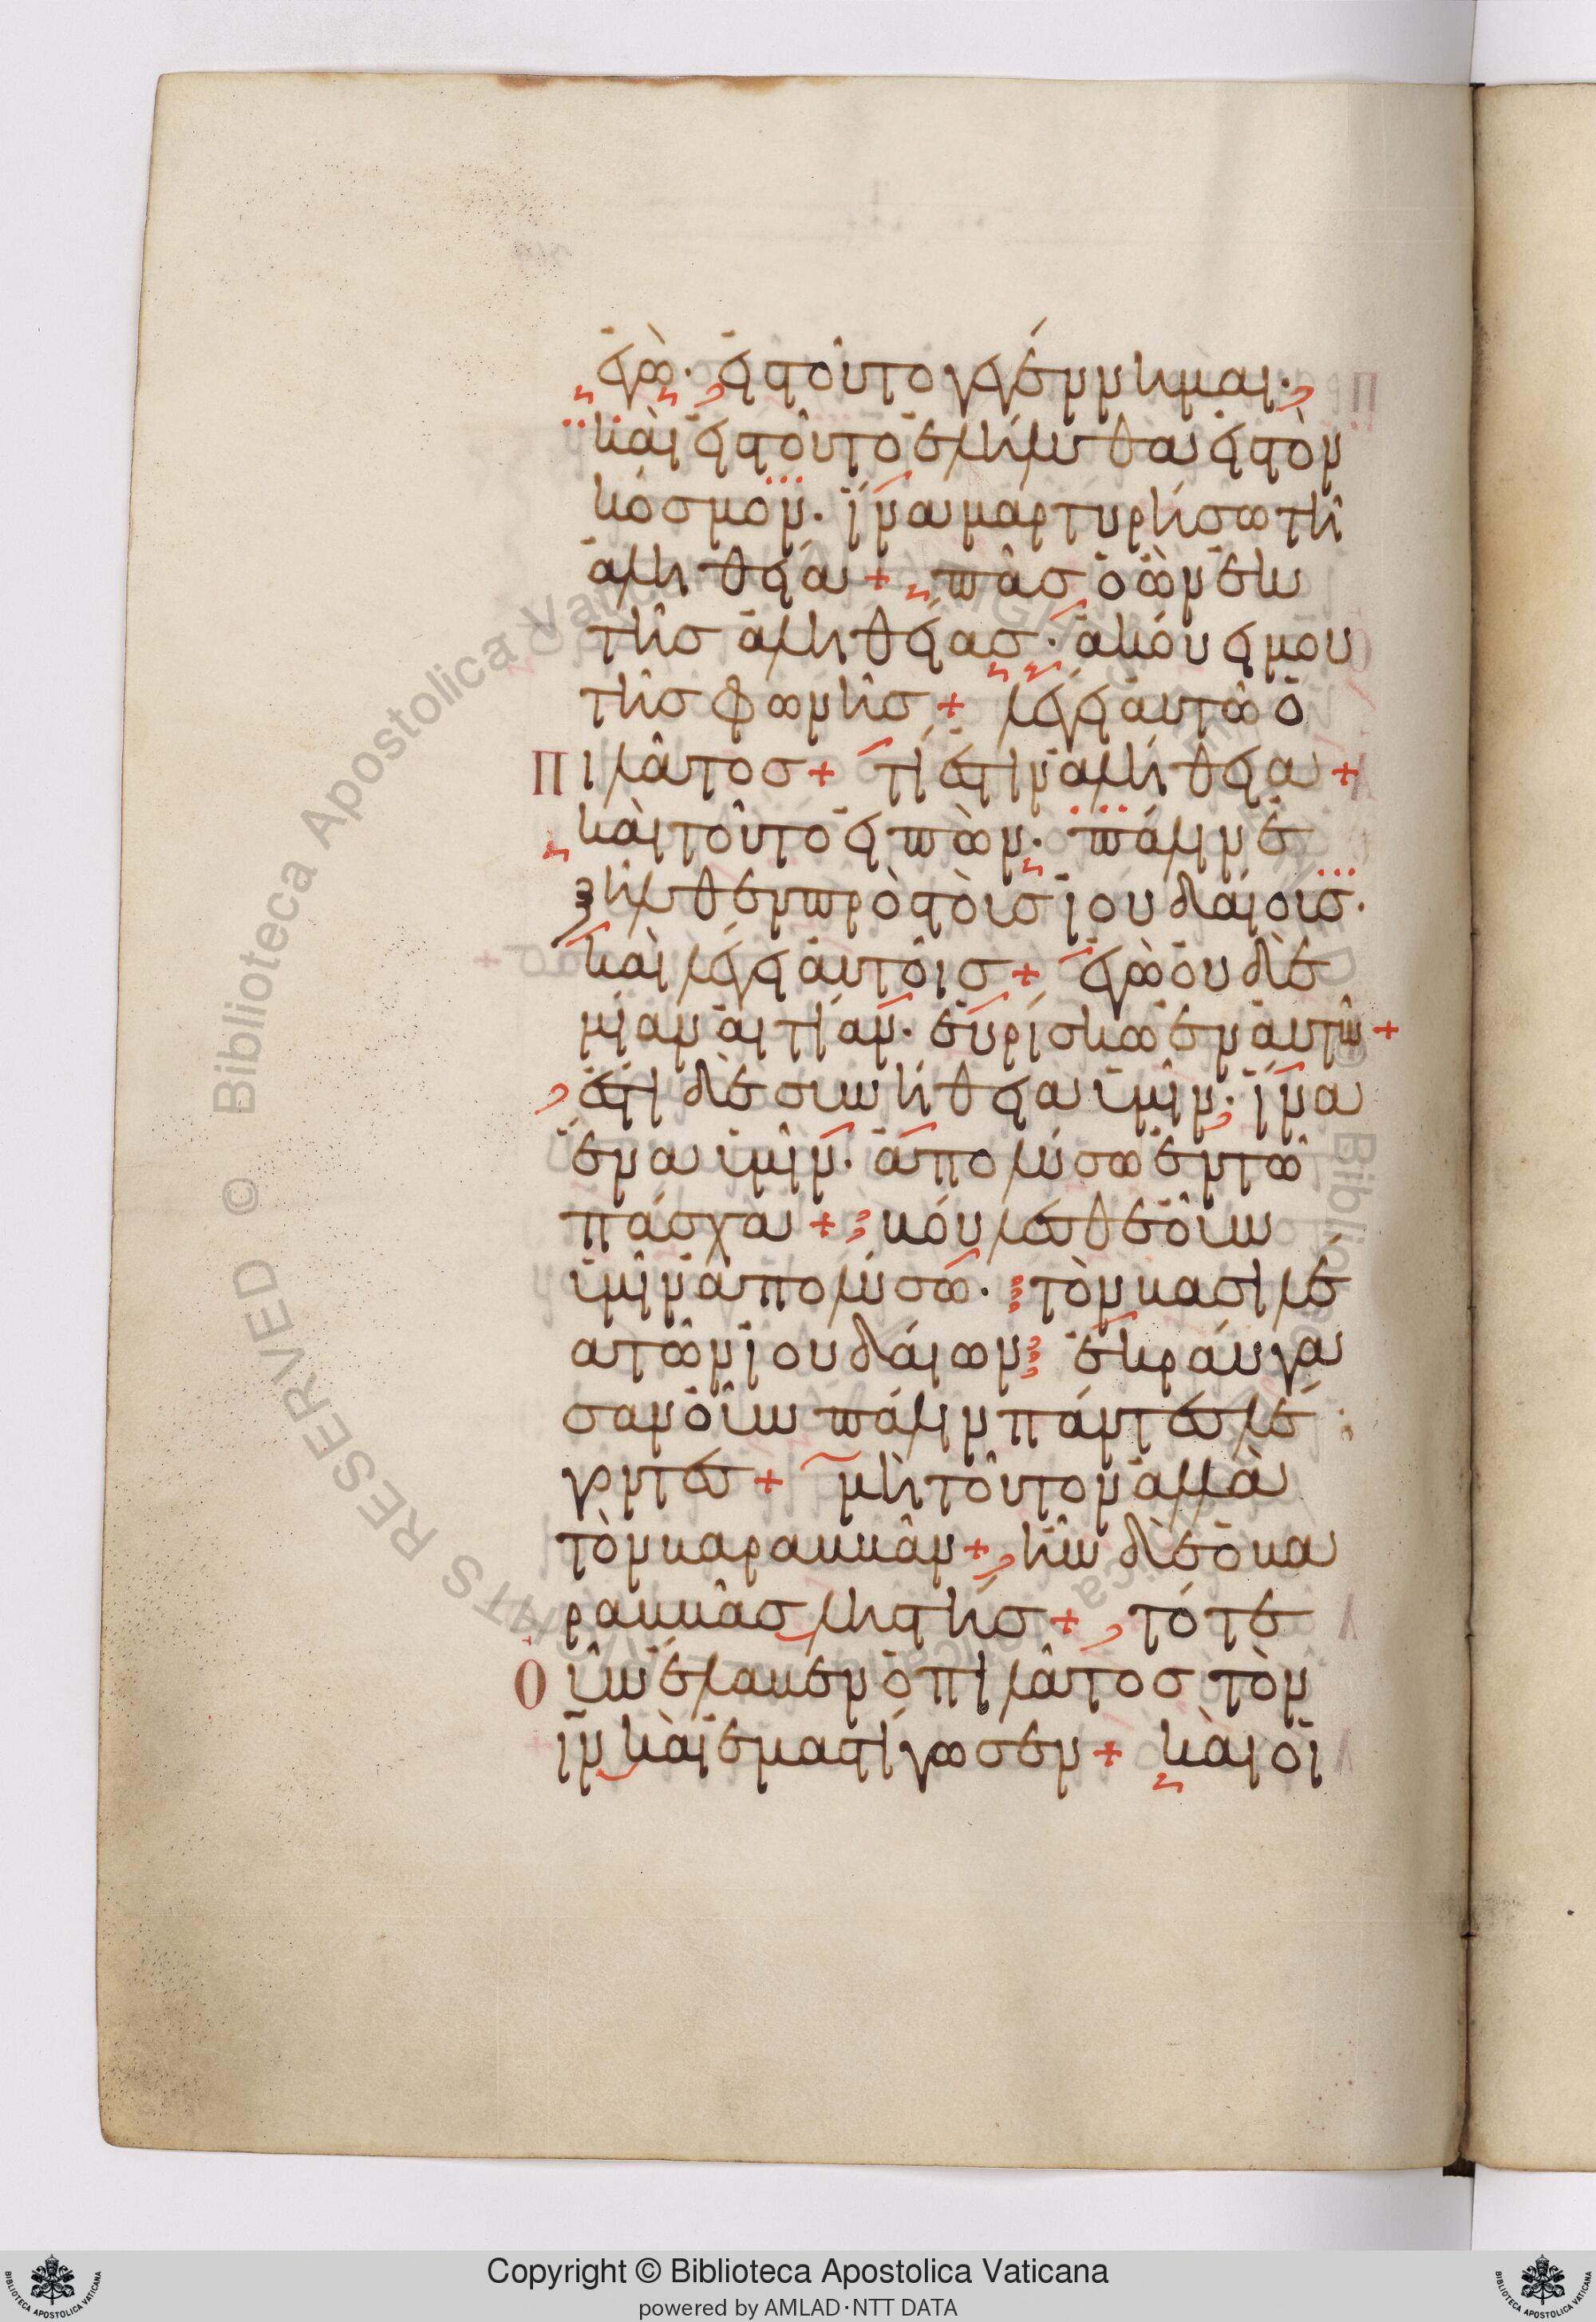 ἐγὼ· εἰς τοῦτο γεγέννημαι·
καὶ εἰς τοῦτο ἐλήλυθα εἰς τὸν
κόσμον· ἵνα μαρτυρήσω τῆ
ἀληθεία + πᾶς ὁ ὢν ἐκ
τῆς ἀληθείας· ἀκούει μου
τῆς φωνῆς + λέγει αὐτῶ ὁ
Πιλάτος + τί ἐστιν ἀλήθεια +
καὶ τοῦτο εἰπὼν· πάλιν ἐ
ξῆλθεν πρὸς τοὺς ἰουδαίους·
καὶ λέγει αὐτοῖς + ἐγὼ οὐδὲ
μίαν αἰτίαν· εὑρίσκω ἐν αὐτῶ +
ἔστι δὲ συνήθεια ὑμῖν· ἵνα
ἕνα ὑμῖν· ἀπολύσω ἐν τῶ
πάσχα + βούλεσθε οὖν
ὑμῖν ἀπολύσω· τὸν βασιλέ
α τῶν ἰουδαίων ἐκραύγα
σαν οὖν πάλιν πάντες λέ
γοντες + μὴ τοῦτον ἀλλὰ
τὸν βαραββᾶν + ἦν δὲ ὁ βα
ραββᾶς ληστής + τότε
Οὖν ἔλαβεν ὁ πιλάτος τὸν
ἰν καὶ ἐμαστίγωσεν + καὶ οἱ
Copyright © Biblioteca Apostolica Vaticana
powered by AMLAD·NTT DATA